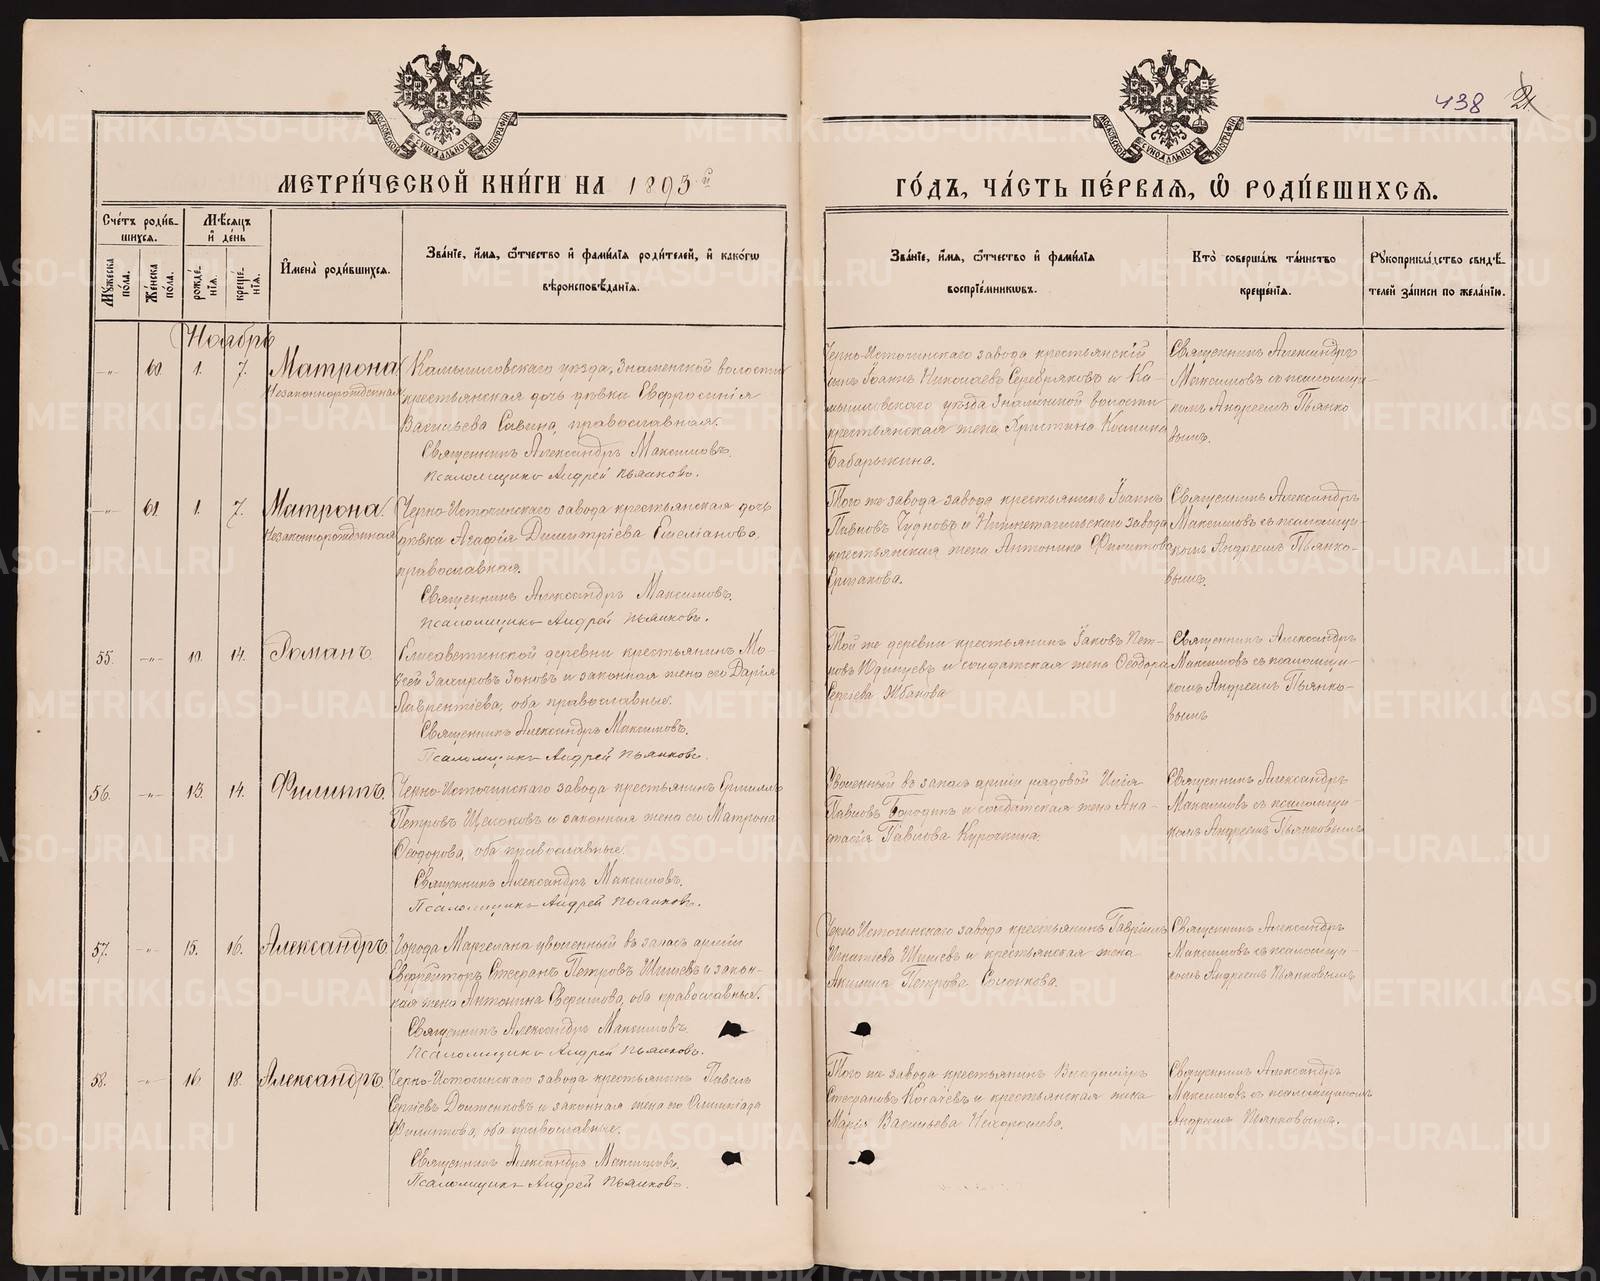 438 24
МЕТРИ́ЧЕСКОЙ КНИ́ГИ НА 1893й
ГО́ДЪ, ЧА́СТЬ ПЕ́РВАЯ, Ѿ РОДИ́ВШИХСЯ.
Сче́тъ роди́в-
шихся.
Мꙋжеска по́ла.
Же́нска по́ла.
Мѣ́сяцъ и҆ де́нь
рожде́-
нїя.
креще́-
нїя.
И҆мена̀ роди́вшихся.
Зва́нїе, и҆́мя, ѻ҆́тчество и҆ фами́лїя роди́телей, и҆ како́гѡ
вѣроисповѣ́данїя.
Зва́нїе, и҆́мя, ѻ҆́тчество и҆ фами́лїя
воспрїе́мникѡвъ.
Кто̀ соверша́лъ та́инство
креще́нїя.
Рꙋкоприкла́дство свидѣ́-
телей за́писи по жела́нїю.
Ноябрь
-„- 60 1. 7. Матрона
Незаконнорожденная
Камышловскаго уѣзда, Знаменской волости
крестьянская дочь дѣвка Евфросинія
Васильева Савина, православная.
Священникъ Александръ Максимовъ.
Псаломщикъ Андрей Пьянковъ.
Черно-Источинскаго завода крестьянскій
сынъ Іоаннъ Николаевъ Серебряковъ и Ка-
мышловскаго уѣзда Знаменской волости
крестьянская жена Христина Космина
Бабарыкина.
Священникъ Александръ
Максимовъ съ псаломщи-
комъ Андреемъ Пьянко
вымъ.
-„- 61. 1. 7. Матрона.
Незаконнорожденная
Черно-Источинскаго завода крестьянская дочь
дѣвка Агафія Димитріева Емеліанова,
православная.
Священникъ Александръ Максимовъ.
Псаломщикъ Андрей Пьянковъ.
Того же завода завода крестьянинъ Іоаннъ
Павловъ Чудновъ и Нижнетагильскаго завода
крестьянская жена Антонина Филитова
Ермакова.
Священникъ Александръ
Максимовъ съ псаломщи-
комъ Андреемъ Пьянко-
вымъ.
55. -„- 10. 14. Романъ.
Елисаветинской деревни крестьянинъ Мо-
исей Зоновъ и законная жена его Дарія
Лаврентіева, оба православные.
Священникъ Александръ Максимовъ.
Псаломщикъ Андрей Пьянковъ.
Той же деревни крестьянинъ Іаковъ Пет-
ровъ Юдинцевъ и солдатская жена Ѳеодора
Сергіева Жбанова
Священникъ Александръ
Максимовъ съ псаломщи-
комъ Андреемъ Пьянко-
вымъ
56. -„- 13. 14. Филиппъ.
Черно-Источинскаго завода крестьянинъ Ермилъ
Петровъ Щелоковъ и законная жена его Матрона
Ѳеодорова, оба православные.
Священникъ Александръ Максимовъ.
Псаломщикъ Андрей Пьянковъ.
Уволенный въ запасъ арміи рядовой Илія
Павловъ Бородинъ и солдатская жена Ана-
стасія Павлова Курочкина.
Священникъ Александръ
Максимовъ съ псаломщи-
комъ Андреемъ Пьянковымъ
57. -„- 15. 16. Александръ.
Города Маргелана уволенный въ запасъ арміи
Ефрейторъ Стефанъ Петровъ Шишевъ и закон-
ная жена Антонина Ефимова, оба православные.
Священникъ Александръ Максимовъ.
Псаломщикъ Андрей Пьянковъ.
Черно Источинскаго завода крестьянинъ Гавріилъ
Игнатіевъ Шишевъ и крестьянская жена
Акилина Петрова
Священникъ Александръ
Максимовъ съ псаломщи-
комъ Андреемъ Пьянковымъ
58. -„- 16. 18. Александръ.
Черно-Источинскаго завода крестьянинъ Павелъ
Сергіевъ Долженковъ и законная жена его Олимпіада
Филитова, оба православные.
Священникъ Александръ Максимовъ.
Псаломщикъ Андрей Пьянковъ.
Того же завода крестьянинъ Владиміръ
Стефановъ Косачевъ и крестьянская жена
Марія Васильева Нехорошева.
Священникъ Александръ
Максимовъ съ псаломщикомъ
Андреемъ Пьянковымъ.
METRIKI.GASO-URAL.RU